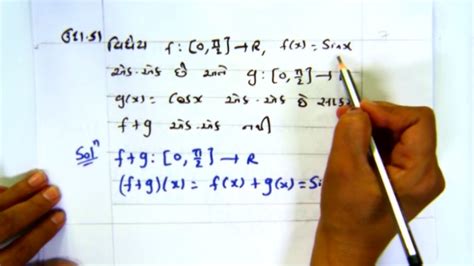 વિધેય f : [0, π/2] → R, f(x) = Sinx
એક-એક છે અને g : [0, π/2] →
g(x) = Cosx એક-એક છે
f+g એક-એક નથી
Solⁿ f+g : [0, π/2] → R
(f+g)(x) = f(x) + g(x) = Si